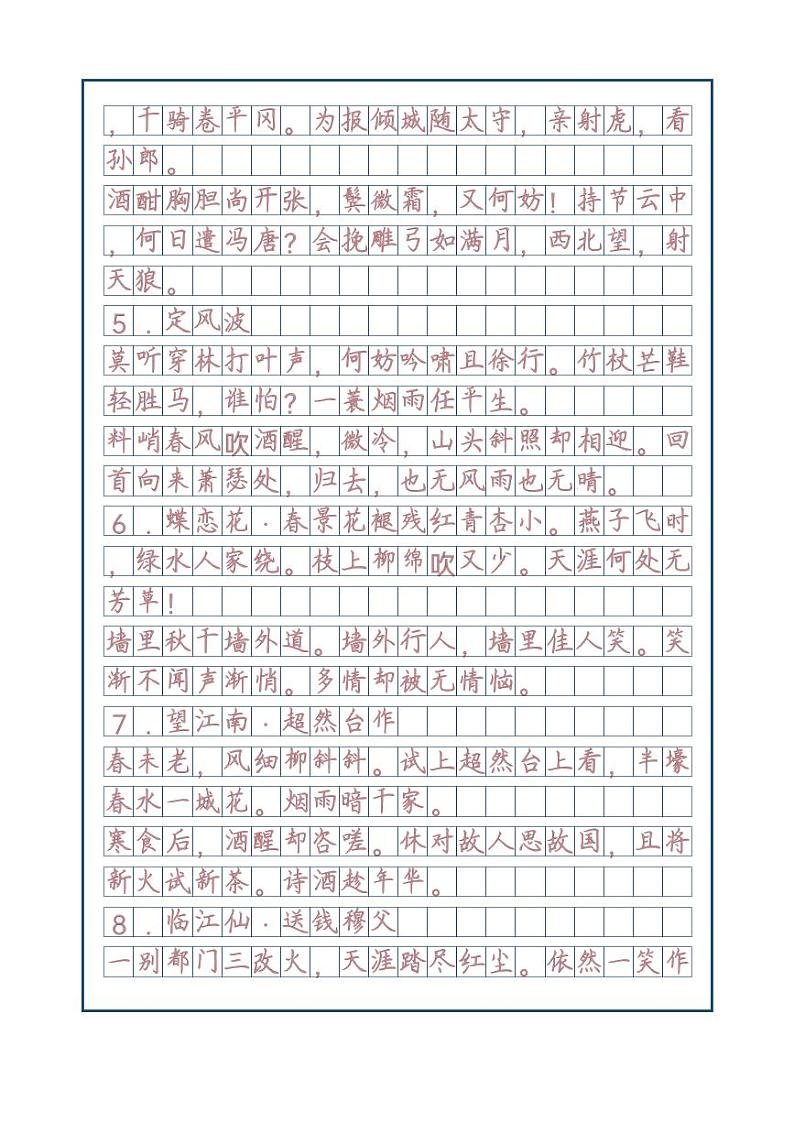 ，千骑卷平冈。为报倾城随太守，亲射虎，看
孙郎。
酒酣胸胆尚开张，鬓微霜，又何妨！持节云中
，何日遣冯唐？会挽雕弓如满月，西北望，射
天狼。
5.定风波
莫听穿林打叶声，何妨吟啸且徐行。竹杖芒鞋
轻胜马，谁怕？一蓑烟雨任平生。
料峭春风吹酒醒，微冷，山头斜照却相迎。回
首向来萧瑟处，归去，也无风雨也无晴。
6.蝶恋花·春景花褪残红青杏小。燕子飞时
，绿水人家绕。枝上柳绵吹又少。天涯何处无
芳草！
墙里秋千墙外道。墙外行人，墙里佳人笑。笑
渐不闻声渐悄。多情却被无情恼。
7.望江南·超然台作
春未老，风细柳斜斜。试上超然台上看，半壕
春水一城花。烟雨暗千家。
寒食后，酒醒却咨嗟。休对故人思故国，且将
新火试新茶。诗酒趁年华。
8.临江仙·送钱穆父
一别都门三改火，天涯踏尽红尘。依然一笑作